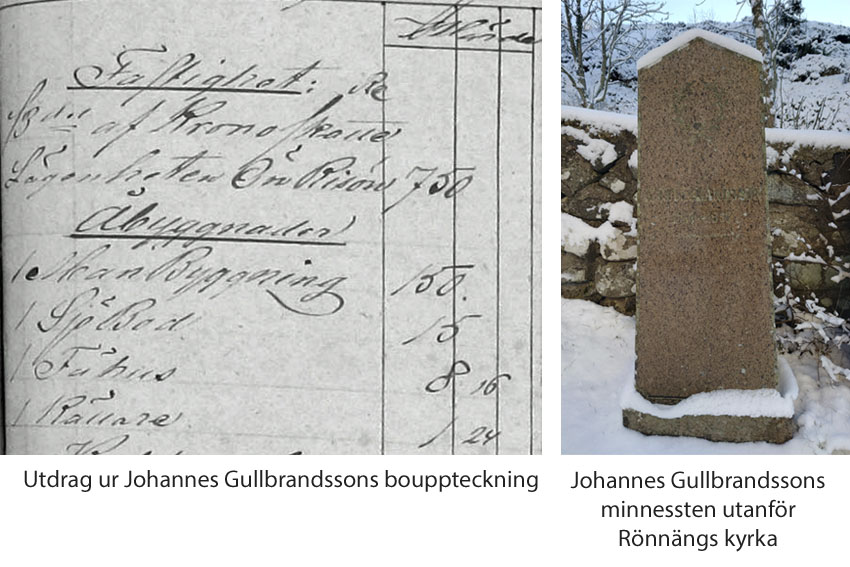 Wärde
Fastighet:
af Kronoskatte
Lägenheten Ön Risön 750
Åbyggnader
1 Man Byggning 150.
1 Sjöbod 15
1 Fähus 8 16
1 Källare 1 24
Utdrag ur Johannes Gullbrandssons bouppteckning
Johannes Gullbrandssons
minnessten utanför
Rönnängs kyrka